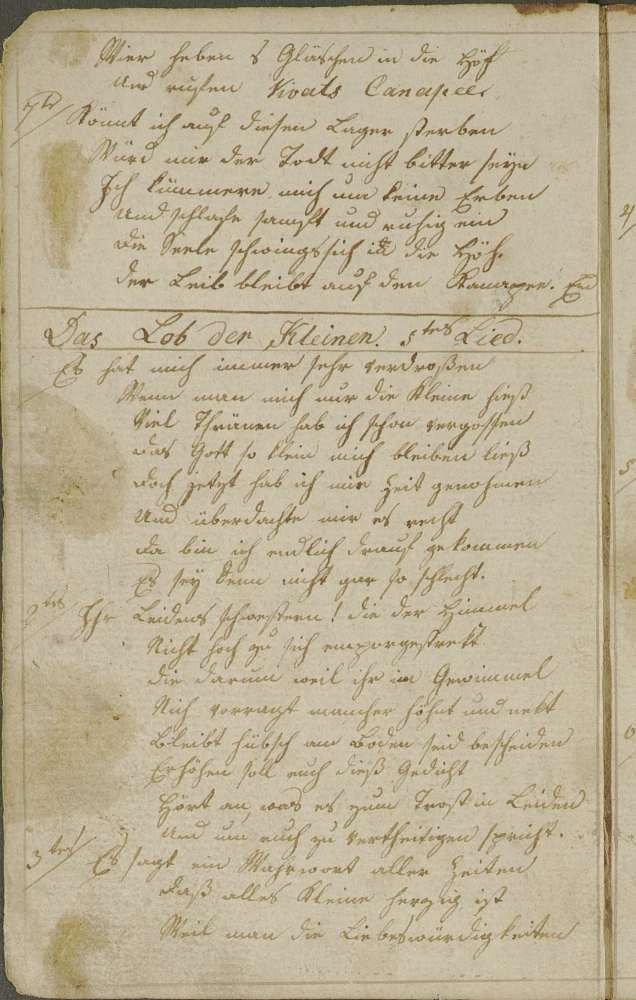 Wier heben s Gläschen in die Höh
und rufen Vivats Canapee.
7te Könnt ich auf diesen Lager sterben
Würd mir der Todt nicht bitter seyn
Ich kümmere mich um keine Erben
Und schlafe sanft und ruhig ein
Die Seele schwingt sich in die Höh.
der Leib bleibt auf den Kanapee. End
Das Lob der Kleinen. 5tes Lied.
Es hat mich immer sehr verdroßen
Wenn man mich nur die Kleine hieß
Viel Thränen hab ich schon vergossen
das Gott so klein mich bleiben ließ
doch jetzt hab ich mir Zeit genohmen
Und überdachte mir es recht
da bin ich endlich drauf gekommen
Es sey denn nicht gar so schlecht.
2tes Ihr Leidens schwestern! die der Himmel
Nicht hoch zu sich emporgestrekt
die darum weil ihr im Gewimmel
Nich vorragt mancher höhnt und nekt
Bleibt hübsch am Boden seid bescheiden
Erhöhen soll euch dieß Gedicht
Hört an, was es zum Trost in Leiden
Und um euch zu vertheitigen spricht.
3tes Es sagt ein Wahrwort aller Zeiten
daß alles Kleine herzig ist
Weil man die Liebeswürdigkeiten